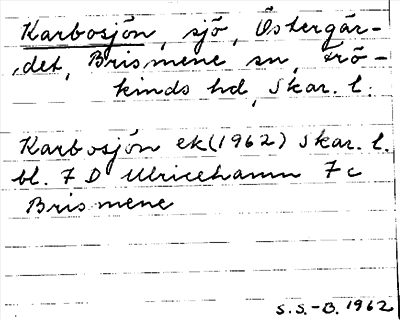 Karbosjön, sjö, Östergär-
det, Brismene sn, Frö-
kinds hd, Skar. l.
Karbosjön ek (1962) Skar. l.
bl. 7 D Ulricehamn 7 c
Brismene
S.S.-B. 1962